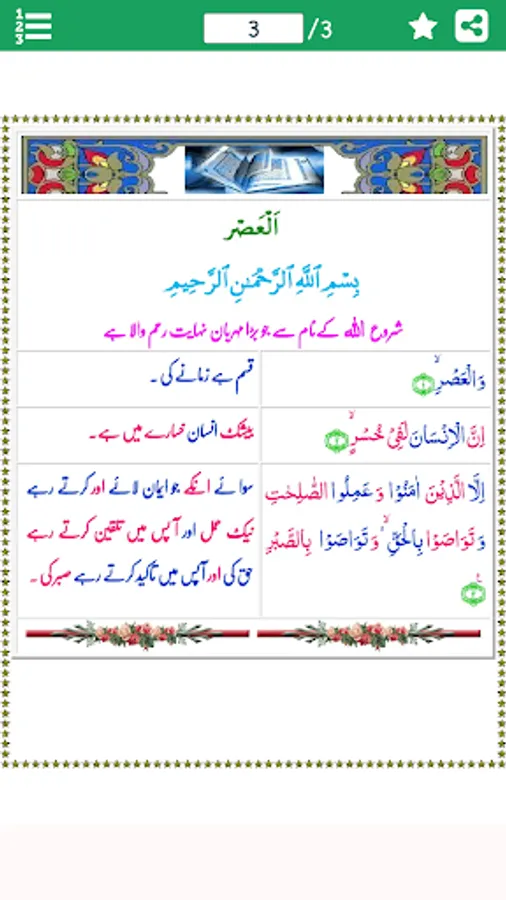 1
2
3
3 /3
اَلْعَصْر
بِسْمِ اللَّهِ الرَّحْمَٰنِ الرَّحِيمِ
شروع اللہ کے نام سے جو بڑا مہربان نہایت رحم والا ہے
وَالْعَصْرِۙ ۱
قسم ہے زمانے کی ۔
اِنَّ الْاِنْسَانَ لَفِیْ خُسْرٍۙ ۲
بیشک انسان خسارے میں ہے ۔
اِلَّا الَّذِیْنَ اٰمَنُوْا وَ عَمِلُوا الصّٰلِحٰتِ
وَ تَوَاصَوْا بِالْحَقِّ ۙ۬ وَ تَوَاصَوْا بِالصَّبْرِ
۳
سوائے انکے جو ایمان لائے اور کرتے رہے
نیک عمل اور آپس میں تلقین کرتے رہے
حق کی اور آپس میں تاکید کرتے رہے صبر کی ۔